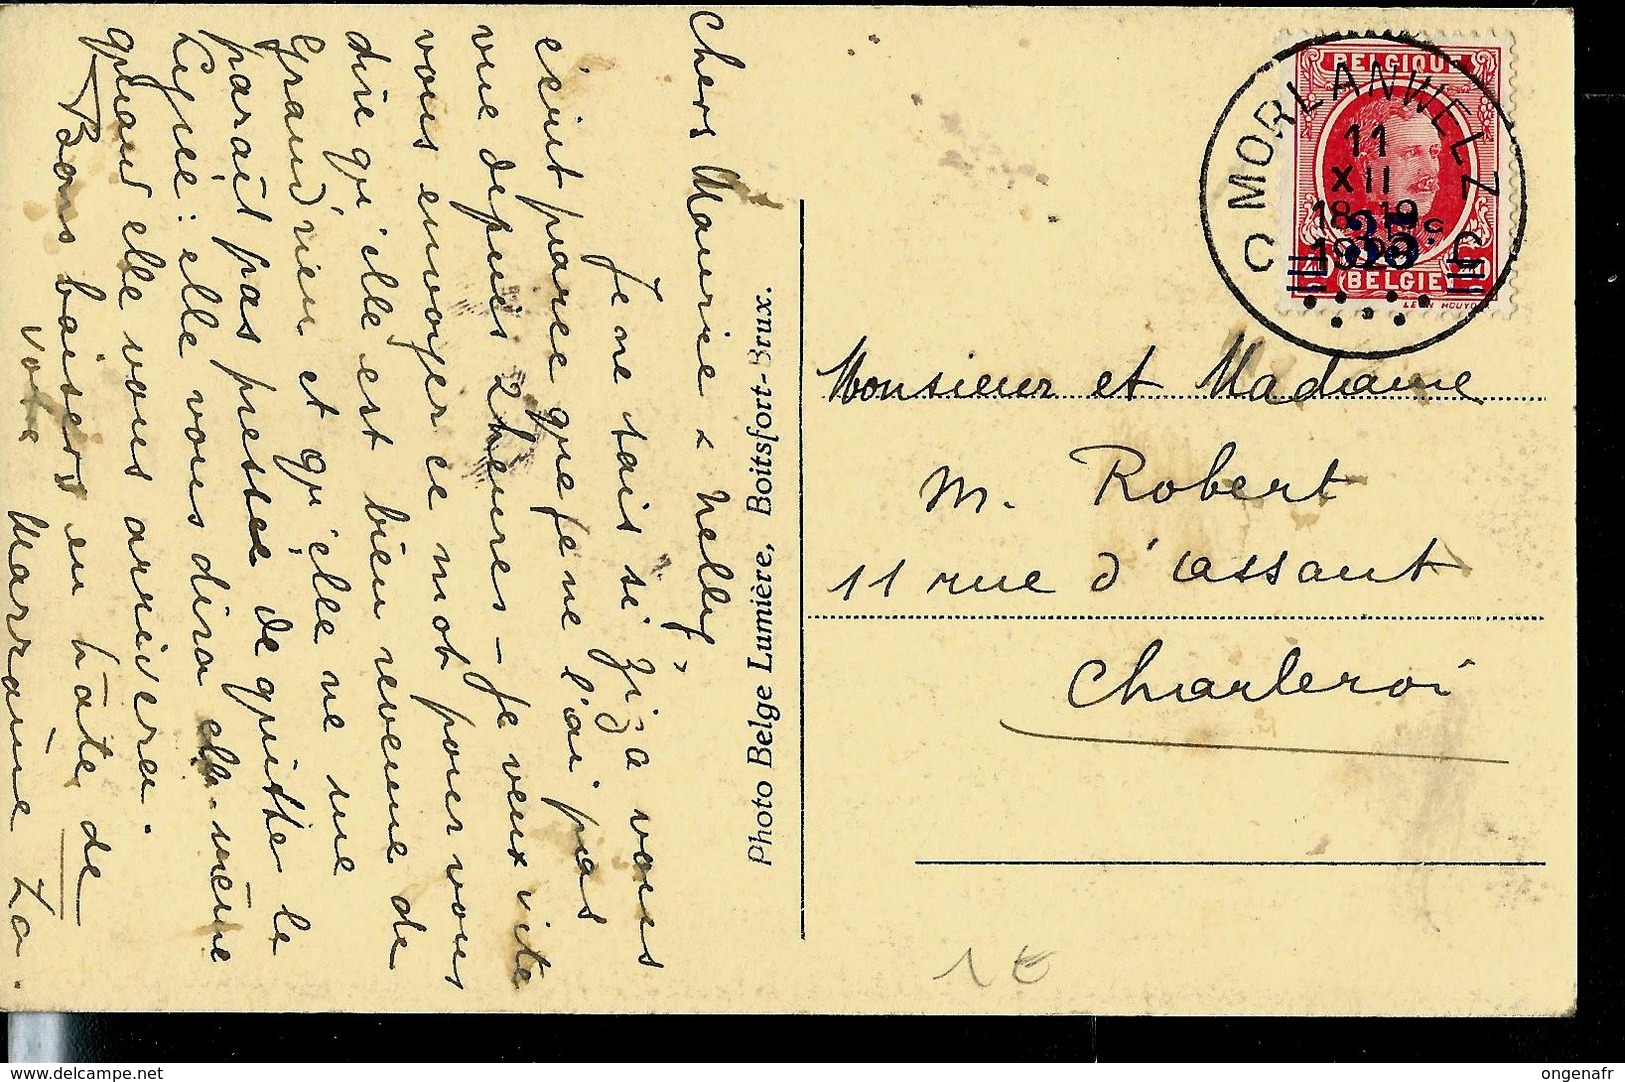 Chers Maurice & Nelly,
Je ne sais si Zi a vous
écrit parce que je ne l'ai pas
vue depuis 2 heures – Je veux vite
vous envoyer ce mot pour vous
dire qu'elle est bien revenue de
Grand'rieu et qu'elle ne me
paraît pas pressée de quitter le
Lycée : elle vous dira elle-même
quand elle vous arrivera.
Bons baisers en hâte de
votre Marraine Lo.
Photo Belge Lumière, Boitsfort-Brux.
BELGIQUE
MORLANWELZ
11
XII
18-19
35c
C C
BELGIE
Monsieur et Madame
M. Robert
11 rue d'assaut
Charleroi
1 €
ongenafr